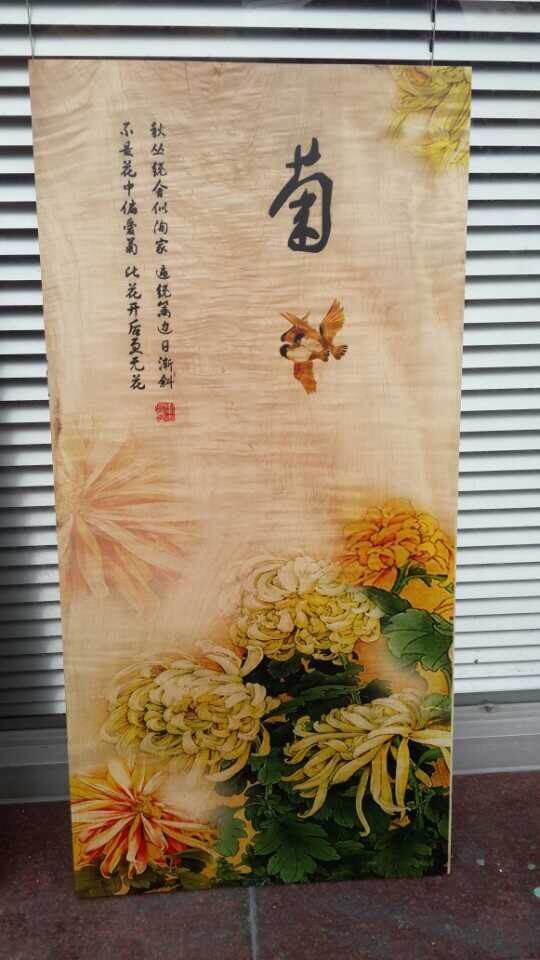 菊
秋丛绕舍似陶家 遍绕篱边日渐斜
不是花中偏爱菊 此花开后更无花